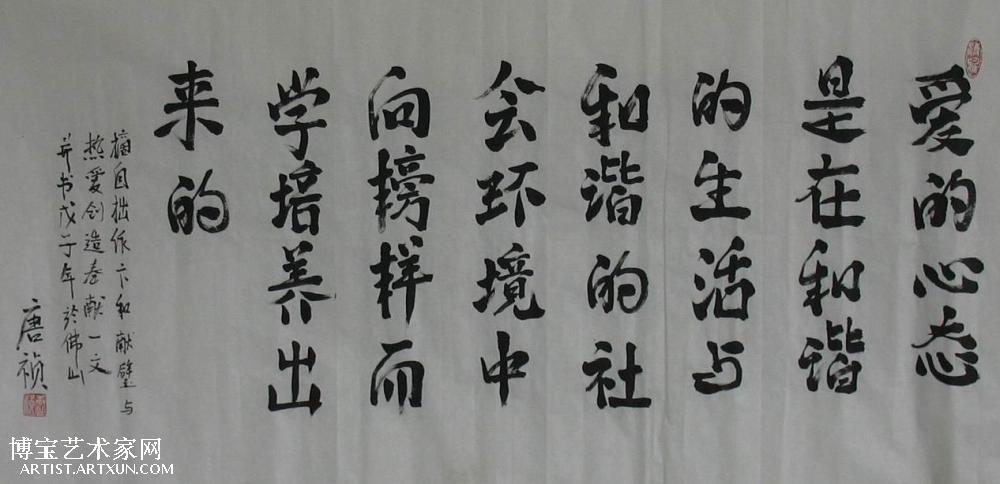 爱的心态
是在和谐
的生活与
和谐的社
会环境中
向榜样而
学培养出
来的
摘自拙作卞和献璧与
热爱创造奉献一文
并书戊子年於佛山
唐祯
博宝艺术家网
ARTIST.ARTXUN.COM